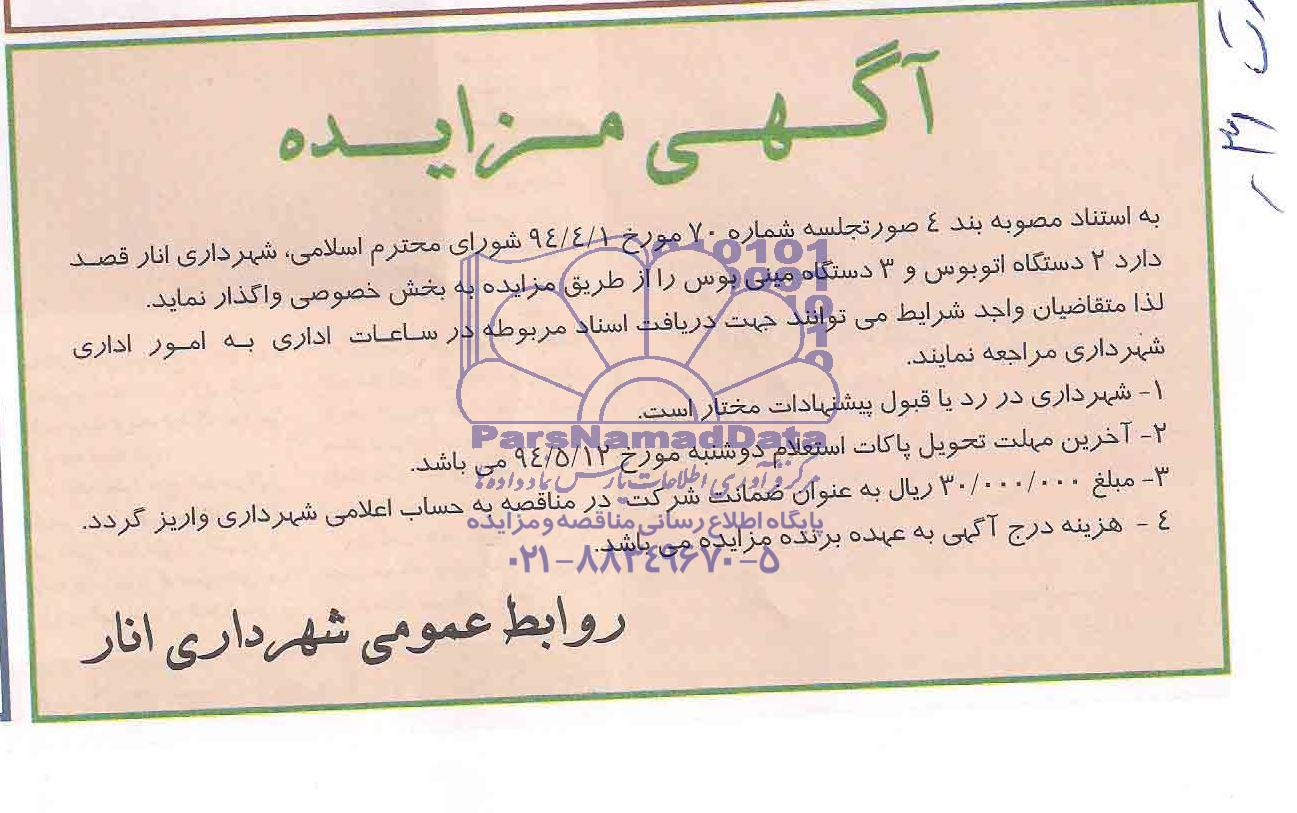 آگهی مزایده
به استناد مصوبه بند ٤ صورتجلسه شماره ۷۰ مورخ ۹٤/٤/۱ شورای محترم اسلامی، شهرداری انار قصد
دارد ۲ دستگاه اتوبوس و ۳ دستگاه مینی بوس را از طریق مزایده به بخش خصوصی واگذار نماید.
لذا متقاضیان واجد شرایط می توانند جهت دریافت اسناد مربوطه در ساعات اداری به امور اداری
شهرداری مراجعه نمایند.
۱- شهرداری در رد یا قبول پیشنهادات مختار است.
۲- آخرین مهلت تحویل پاکات استعلام دوشنبه مورخ ۹٤/۵/۱۲ می باشد.
۳- مبلغ ۳۰/۰۰۰/۰۰۰ ریال به عنوان ضمانت شرکت در مناقصه به حساب اعلامی شهرداری واریز گردد.
٤ - هزینه درج آگهی به عهده برنده مزایده می باشد.
روابط عمومی شهرداری انار
ParsNamadData
مرکز فرآوری اطلاعات پارس نماد داده ها
پایگاه اطلاع رسانی مناقصه و مزایده
۰۲۱-۸۸۳٤۹۶۷۰-۵